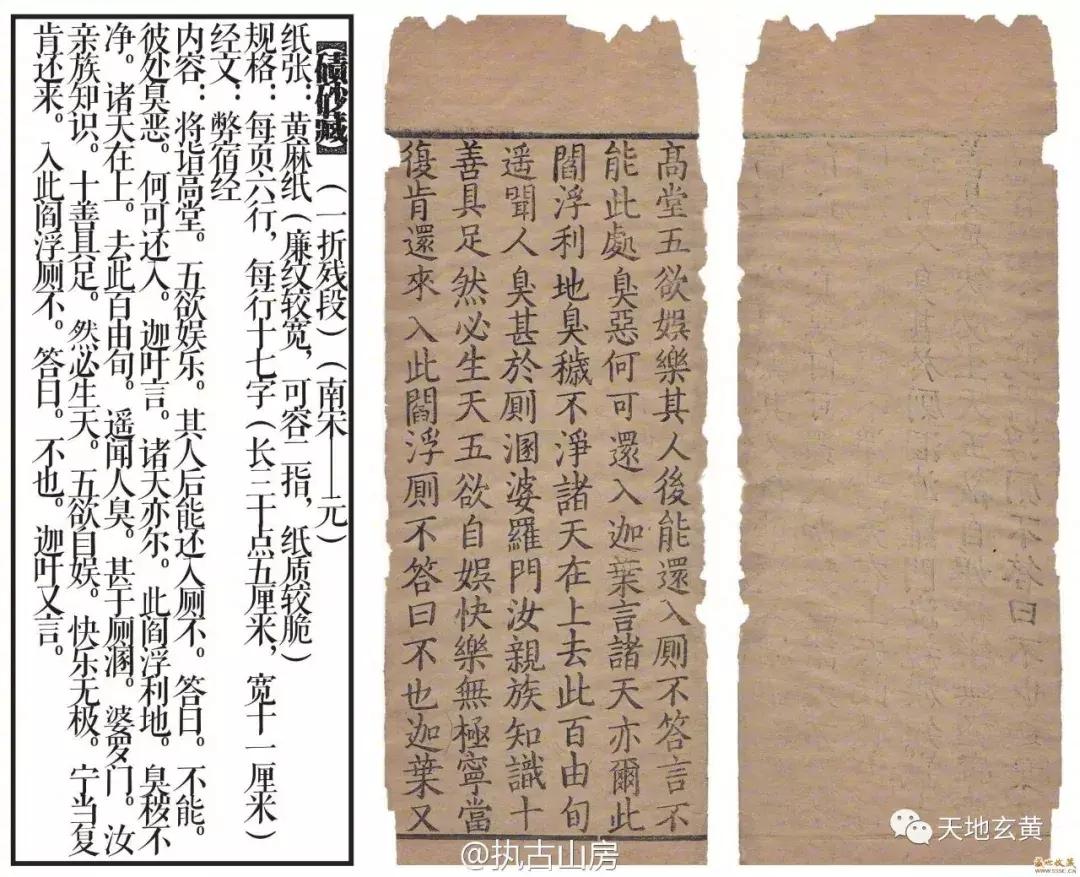 【磧砂藏】（一折残段）（南宋——元）
纸张：黄麻纸（廉纹较宽，可容二指，纸质较脆）
规格：每页六行，每行十七字（长三十点五厘米，宽十一厘米）
经文：弊宿经
内容：将诣高堂。五欲娱乐。其人后能还入厕不。答曰。不能。
彼处臭恶。何可还入。迦叶言。诸天亦尔。此阎浮利地。臭秽不
净。诸天在上。去此百由旬。遥闻人臭。甚于厕溷。婆罗门。汝
亲族知识。十善具足。然必生天。五欲自娱。快乐无极。宁当复
肯还来。入此阎浮厕不。答曰。不也。迦叶又言。
高堂五欲娛樂其人後能還入厕不答言不
能此處臭惡何可還入迦葉言諸天亦爾此
閻浮利地臭穢不淨諸天在上去此百由旬
遥聞人臭甚於厕溷婆羅門汝親族知識十
善具足然必生天五欲自娛快樂無極寧當
復肯還來入此閻浮厕不答曰不也迦葉又
@执古山房
天地玄黄
WWW.SSSC.CN